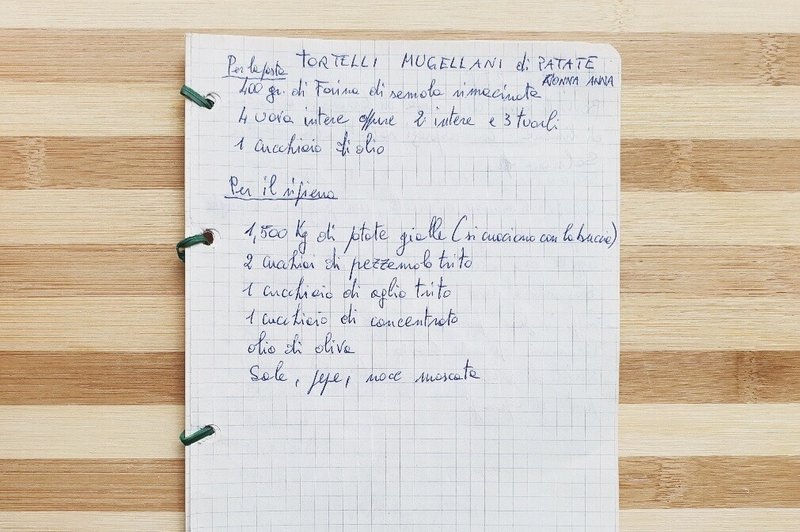 Per la pasta TORTELLI MUGELLANI di PATATE
NONNA ANNA
400 gr. di Farina di semola rimacinata
4 uova intere oppure 2 intere e 3 tuorli
1 cucchiaio di olio
Per il ripieno
1,500 Kg di patate gialle (si cuociono con la buccia)
2 cucchiai di pezzemolo trito
1 cucchiaio di aglio trito
1 cucchiaio di concentrato
olio di oliva
Sale, pepe, noce moscata